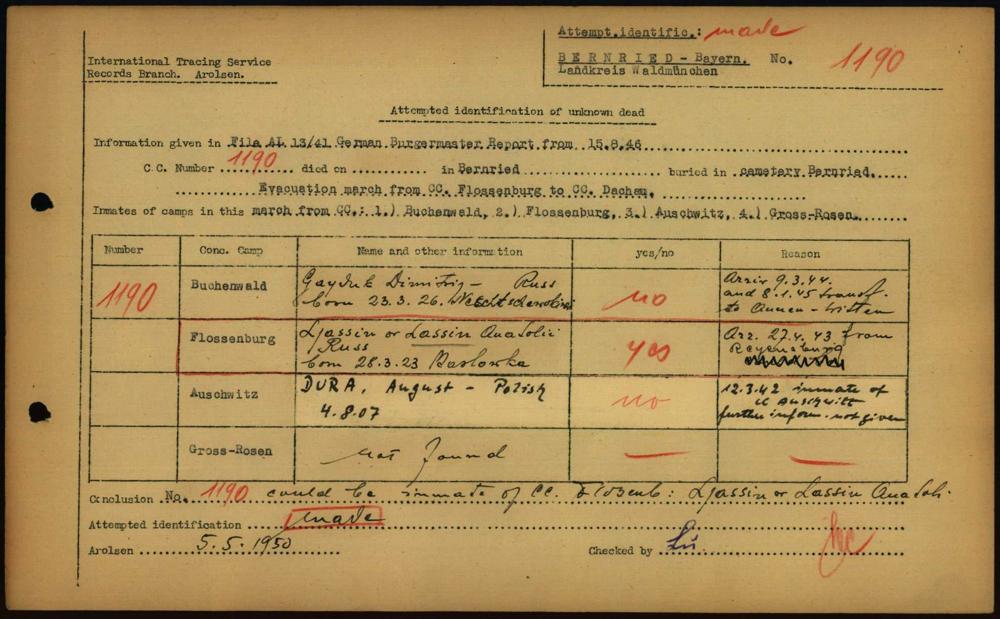 Attempt.identific.: made
International Tracing Service
Records Branch. Arolsen.
BERNRIED - Bayern. No. 1190
Landkreis Waldmünchen
Attempted identification of unknown dead
Information given in File AL 13/41 German Burgermaster Report from 15.8.46
C.C. Number 1190 died on ............ in Bernried ............ buried in cemetary Bernried.
Evacuation march from CC. Flossenburg to CC. Dachau.
Inmates of camps in this march from CC.: 1.) Buchenwald, 2.) Flossenburg, 3.) Auschwitz, 4.) Gross-Rosen.
Number Conc. Camp Name and other information yes/no Reason
1190 Buchenwald Gayduk Dimitrij - Russ
born 23.3.26.
no
Arriv 9.3.44.
and 8.1.45 transf.
to Annen-Witten
Flossenburg Ljassin or Lassin Anatolie
Russ
born 28.3.23 Pawlowka
yes
Arr. 27.4.43 from
Regensburg
Auschwitz DURA, August - Polish
4.8.07
no
12.3.42 inmate of
CC Auschwitz
further inform. not given
Gross-Rosen not found — —
Conclusion No. 1190 could be inmate of CC. Flossenb: Ljassin or Lassin Anatoli.
Attempted identification made
Arolsen 5.5.1950 Checked by Lü.